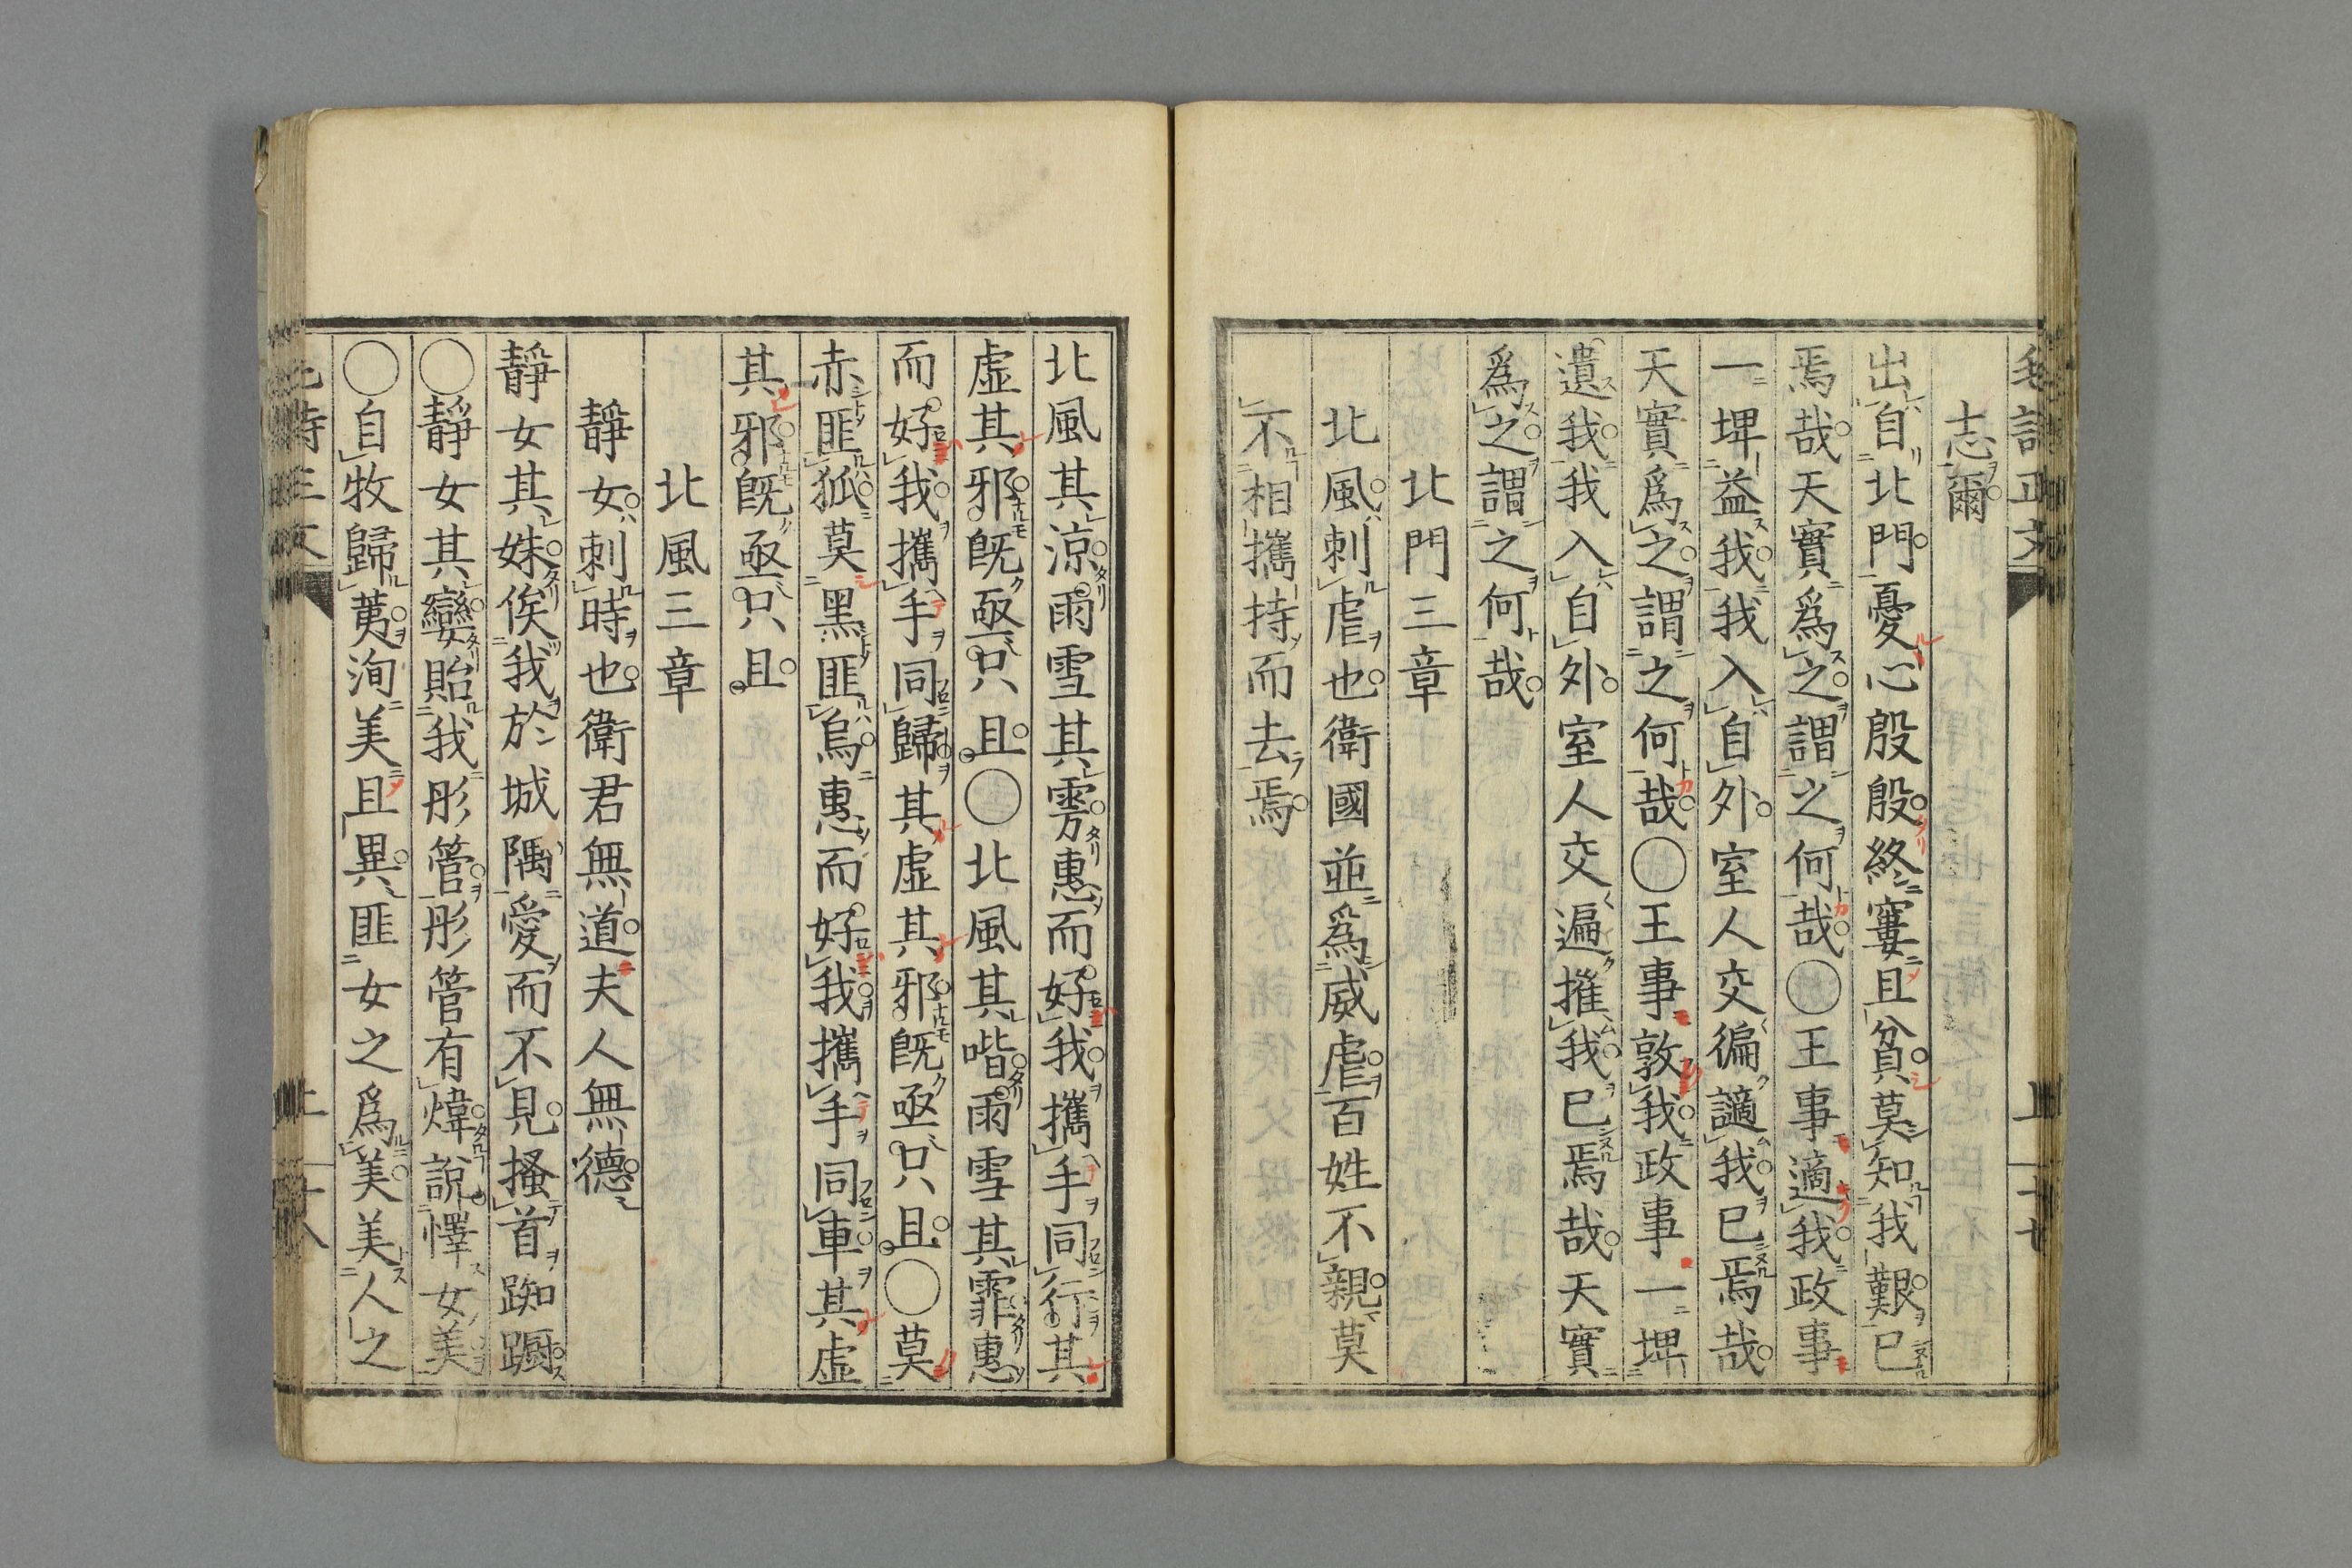 志爾
出自北門憂心殷殷終窶且貧莫知我艱已
焉哉天實爲之謂之何哉○王事適我政事
一埤益我我入自外室人交徧讁我已焉哉
天實爲之謂之何哉○王事敦我政事一埤
遺我我入自外室人交遍摧我已焉哉天實
爲之謂之何哉
北門三章
北風刺虐也衛國並爲威虐百姓不親莫
不相攜持而去焉
北風其涼雨雪其雱惠而好我攜手同行其
虛其邪旣亟只且○北風其喈雨雪其霏惠
而好我攜手同歸其虛其邪旣亟只且○莫
赤匪狐莫黑匪烏惠而好我攜手同車其虛
其邪旣亟只且
北風三章
靜女刺時也衛君無道夫人無德
靜女其姝俟我於城隅愛而不見搔首踟蹰
○靜女其孌貽我彤管彤管有煒說懌女美
○自牧歸荑洵美且異匪女之爲美美人之